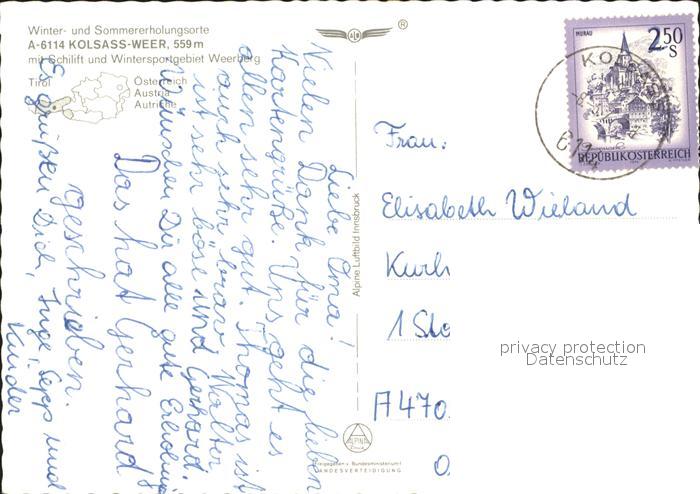 Winter- und Sommererholungsorte
A-6114 KOLSASS-WEER, 559m
mit Schilift und Wintersportgebiet Weerberg
Tirol
Österreich
Austria
Autriche
®
Liebe Oma!
Vielen Dank für die lieben
Kartengrüße. Uns geht es
allen sehr gut. Thomas ist
auch sehr brav Walter
ist sehr böse und Gerhard.
Wünschen Dir alle gute Erholung
Das hat Gerhard
geschrieben.
Es grüßen Dich, Inge, Sepp und
Kinder
Alpine Luftbild Innsbruck
ALPINE
freigegeben v. Bundesministerium f.
LANDESVERTEIDIGUNG
MURAU
2.50
S
REPUBLIK ÖSTERREICH
Frau:
Elisabeth Wieland
Kurh
1 Sto
A 470
O.
privacy protection
Datenschutz